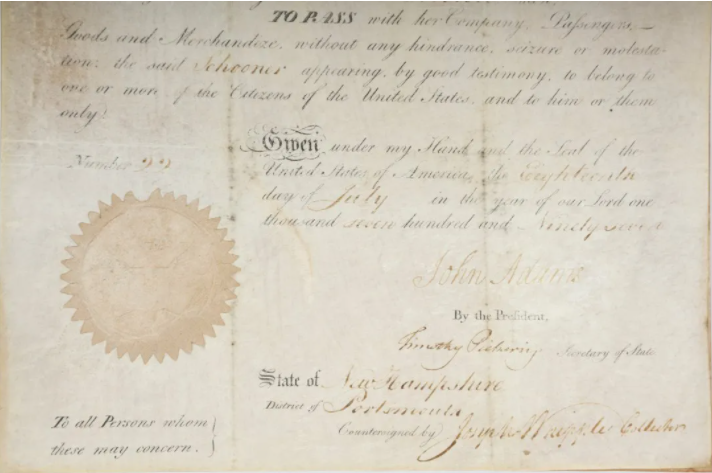 TO PASS with her Company, Passengers,
Goods and Merchandeze, without any hindrance, seizure or molesta-
tion; the said Schooner appearing, by good testimony, to belong to
one or more of the Citizens of the United States, and to him or them
only.
Given under my Hand and the Seal of the
Number 22
United States of America, the Eighteenth
day of July in the year of our Lord one
thousand seven hundred and Ninety seven
John Adams
By the President,
Timothy Pickering Secretary of State
State of New Hampshire
District of Portsmouth
To all Persons whom
Countersigned by Joseph Whipple Collector
these may concern.